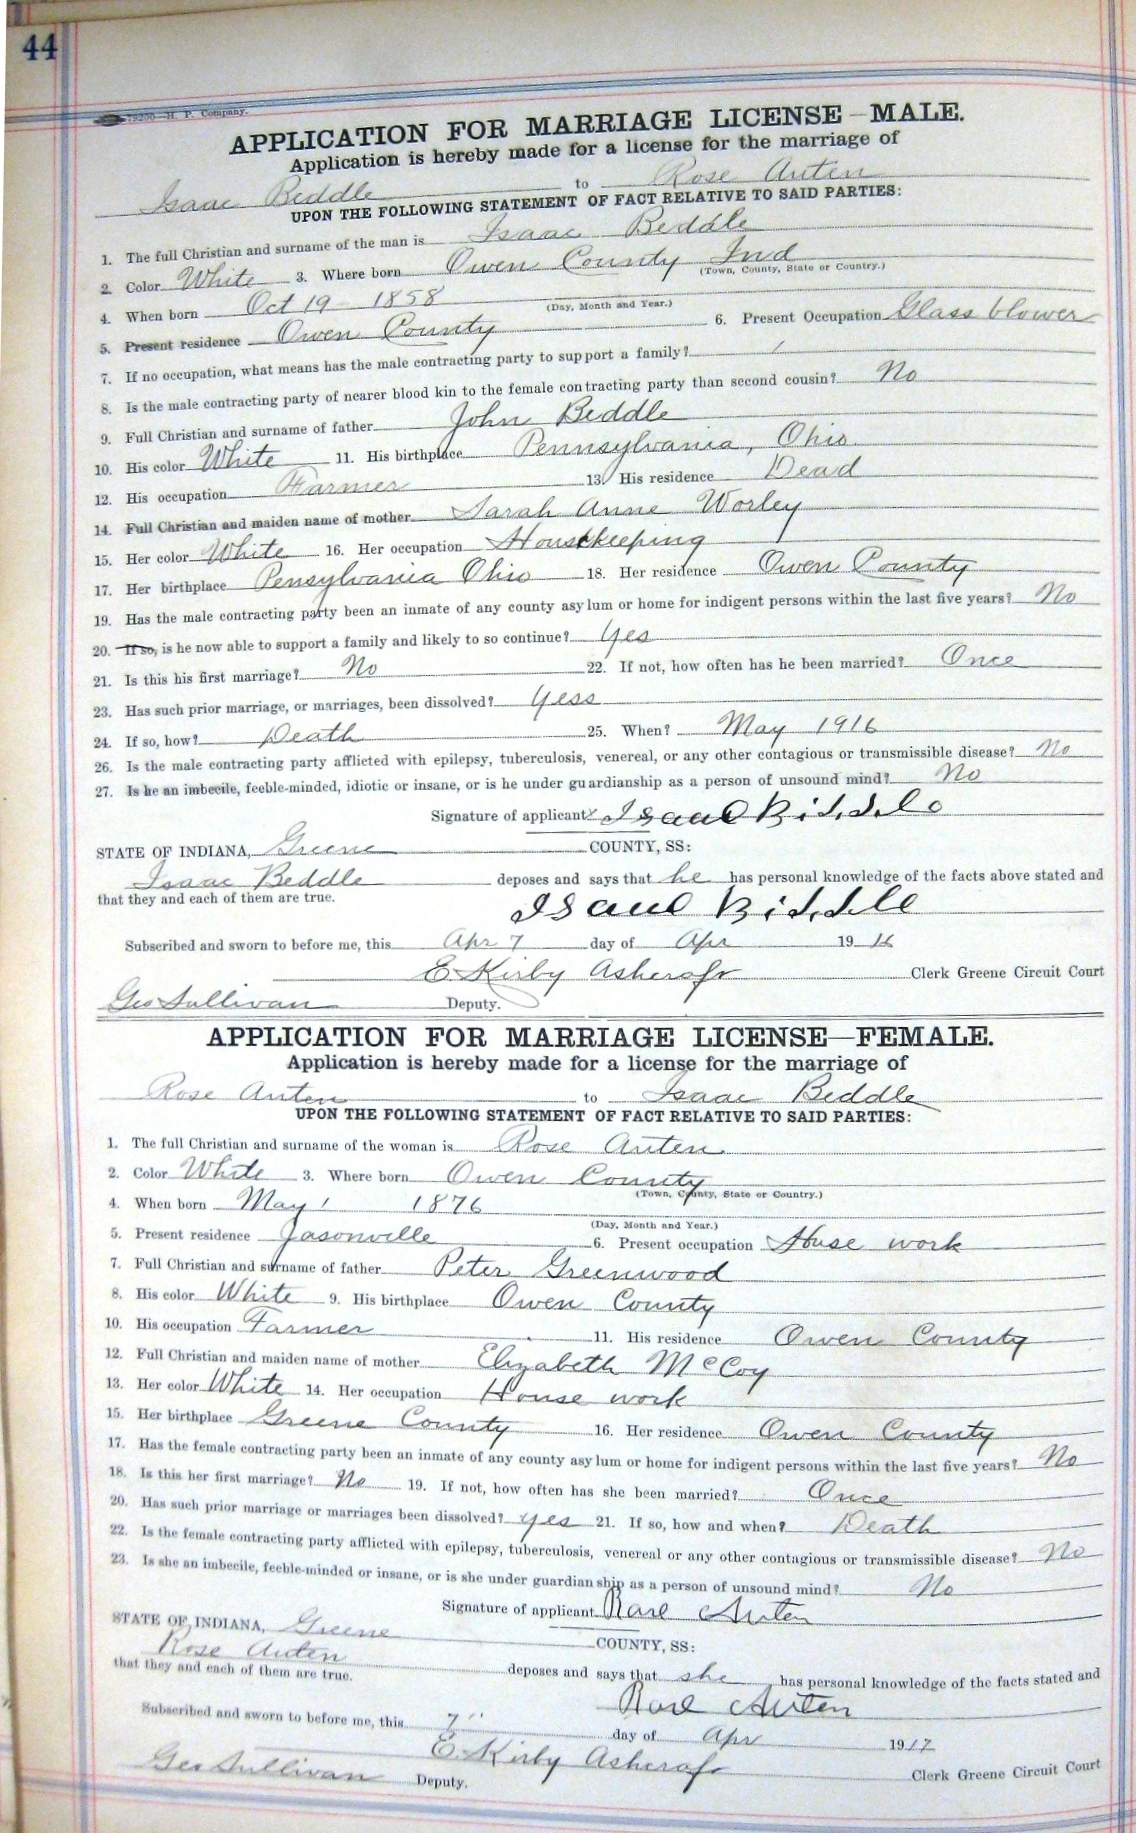 44
79200—H. P. Company.
APPLICATION FOR MARRIAGE LICENSE—MALE.
Application is hereby made for a license for the marriage of
Isaac Beddle to Rose Auten
UPON THE FOLLOWING STATEMENT OF FACT RELATIVE TO SAID PARTIES:
1. The full Christian and surname of the man is Isaac Beddle
2. Color White 3. Where born Owen County Ind
(Town, County, State or Country.)
4. When born Oct 19 1858
(Day, Month and Year.)
5. Present residence Owen County 6. Present Occupation Glass blower
7. If no occupation, what means has the male contracting party to support a family?
8. Is the male contracting party of nearer blood kin to the female contracting party than second cousin? No
9. Full Christian and surname of father John Beddle
10. His color White 11. His birthplace Pennsylvania, Ohio
12. His occupation Farmer 13. His residence Dead
14. Full Christian and maiden name of mother Sarah Anne Worley
15. Her color White 16. Her occupation Housekeeping
17. Her birthplace Pensylvania Ohio 18. Her residence Owen County
19. Has the male contracting party been an inmate of any county asylum or home for indigent persons within the last five years? No
20. If so, is he now able to support a family and likely to so continue? Yes
21. Is this his first marriage? No 22. If not, how often has he been married? Once
23. Has such prior marriage, or marriages, been dissolved? Yess
24. If so, how? Death 25. When? May 1916
26. Is the male contracting party afflicted with epilepsy, tuberculosis, venereal, or any other contagious or transmissible disease? No
27. Is he an imbecile, feeble-minded, idiotic or insane, or is he under guardianship as a person of unsound mind? No
Signature of applicant x Isaac Biddle
STATE OF INDIANA, Greene COUNTY, SS:
Isaac Beddle deposes and says that he has personal knowledge of the facts above stated and
that they and each of them are true.
Isaac Biddle
Subscribed and sworn to before me, this Apr 7 day of Apr 19 16
E. Kirby Ashcraft Clerk Greene Circuit Court
Geo Sullivan Deputy.
APPLICATION FOR MARRIAGE LICENSE—FEMALE.
Application is hereby made for a license for the marriage of
Rose Auten to Isaac Beddle
UPON THE FOLLOWING STATEMENT OF FACT RELATIVE TO SAID PARTIES:
1. The full Christian and surname of the woman is Rose Auten
2. Color White 3. Where born Owen County
(Town, County, State or Country.)
4. When born May 1 1876
(Day, Month and Year.)
5. Present residence Jasonville 6. Present occupation House work
7. Full Christian and surname of father Peter Greenwood
8. His color White 9. His birthplace Owen County
10. His occupation Farmer 11. His residence Owen County
12. Full Christian and maiden name of mother Elizabeth McCoy
13. Her color White 14. Her occupation House work
15. Her birthplace Greene County 16. Her residence Owen County
17. Has the female contracting party been an inmate of any county asylum or home for indigent persons within the last five years? No
18. Is this her first marriage? No 19. If not, how often has she been married? Once
20. Has such prior marriage or marriages been dissolved? Yes 21. If so, how and when? Death
22. Is the female contracting party afflicted with epilepsy, tuberculosis, venereal or any other contagious or transmissible disease? No
23. Is she an imbecile, feeble-minded or insane, or is she under guardianship as a person of unsound mind? No
Signature of applicant Rose Auten
STATE OF INDIANA, Greene COUNTY, SS:
Rose Auten deposes and says that she has personal knowledge of the facts stated and
that they and each of them are true.
Rose Auten
Subscribed and sworn to before me, this 7" day of Apr 1917
E. Kirby Ashcraft Clerk Greene Circuit Court
Geo Sullivan Deputy.